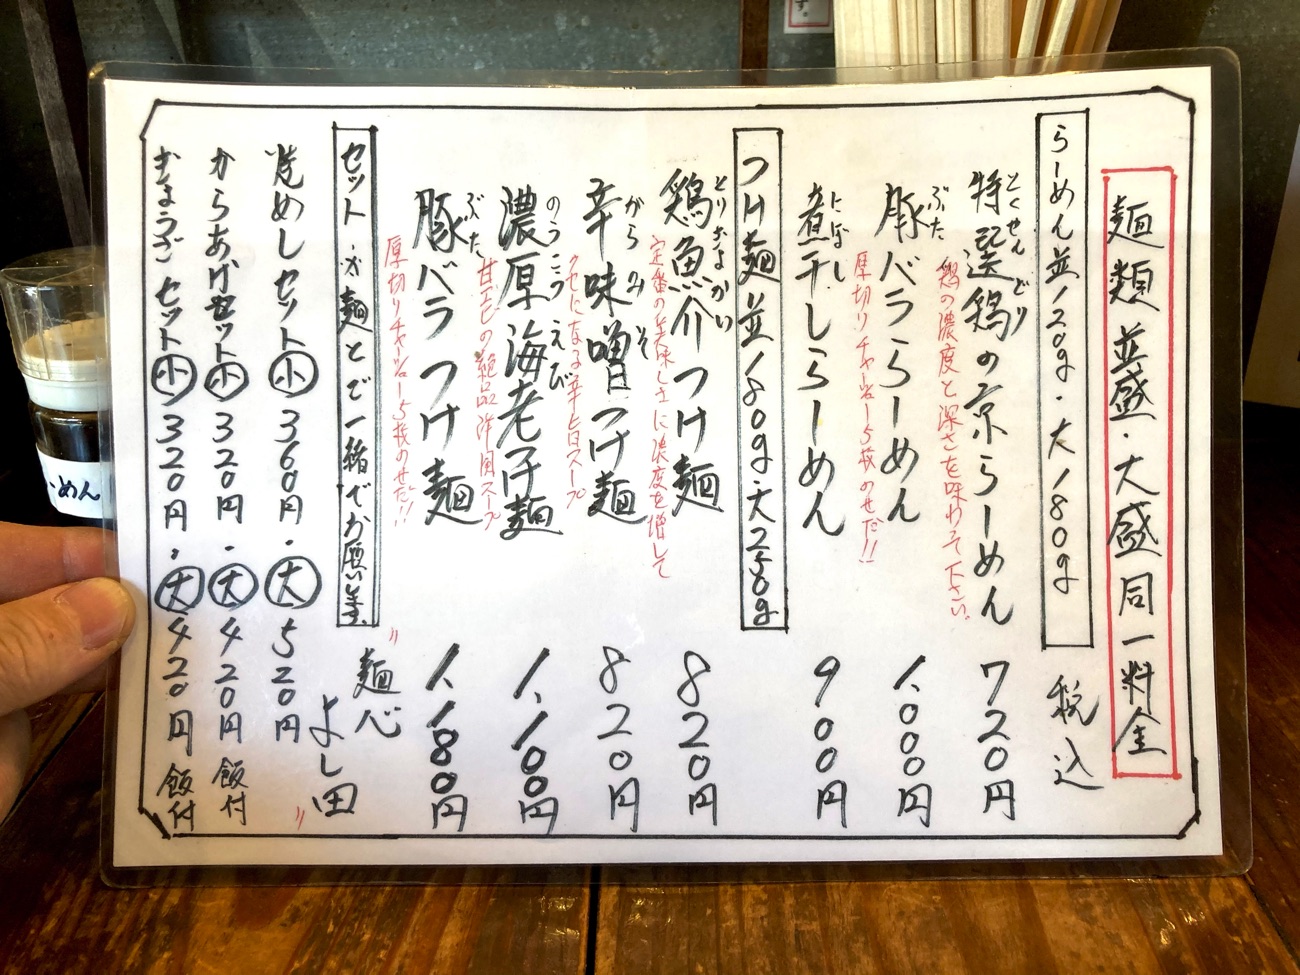 麺類並盛・大盛同一料金
らーめん並120g・大180g
税込
とくせんどり
特選鶏の京らーめん 720円
鶏の濃度と深さを味わって下さい。
ぶた
豚バララーめん 1,000円
厚切りチャーシュー5枚のせだ!!
にぼし
煮干しらーめん 900円
つけ麺並180g・大250g
とりぎょかい
鶏魚介つけ麺 820円
定番の美味しさに濃度を増して
からみそ
辛味噌つけ麺 820円
クセになる辛ヒロスープ
のうこうえび
濃厚海老つけ麺 1,100円
甘エビの絶品洋風スープ
ぶた
豚バラつけ麺 1,180円
厚切りチャーシュー5枚のせだ!!
セット ※麺とで一緒でお願いします。
〃麺心よし田〃
焼めしセット小360円・大520円
からあげセット小320円・大420円飯付
ぎょうざセット小320円・大420円飯付
す。
めん